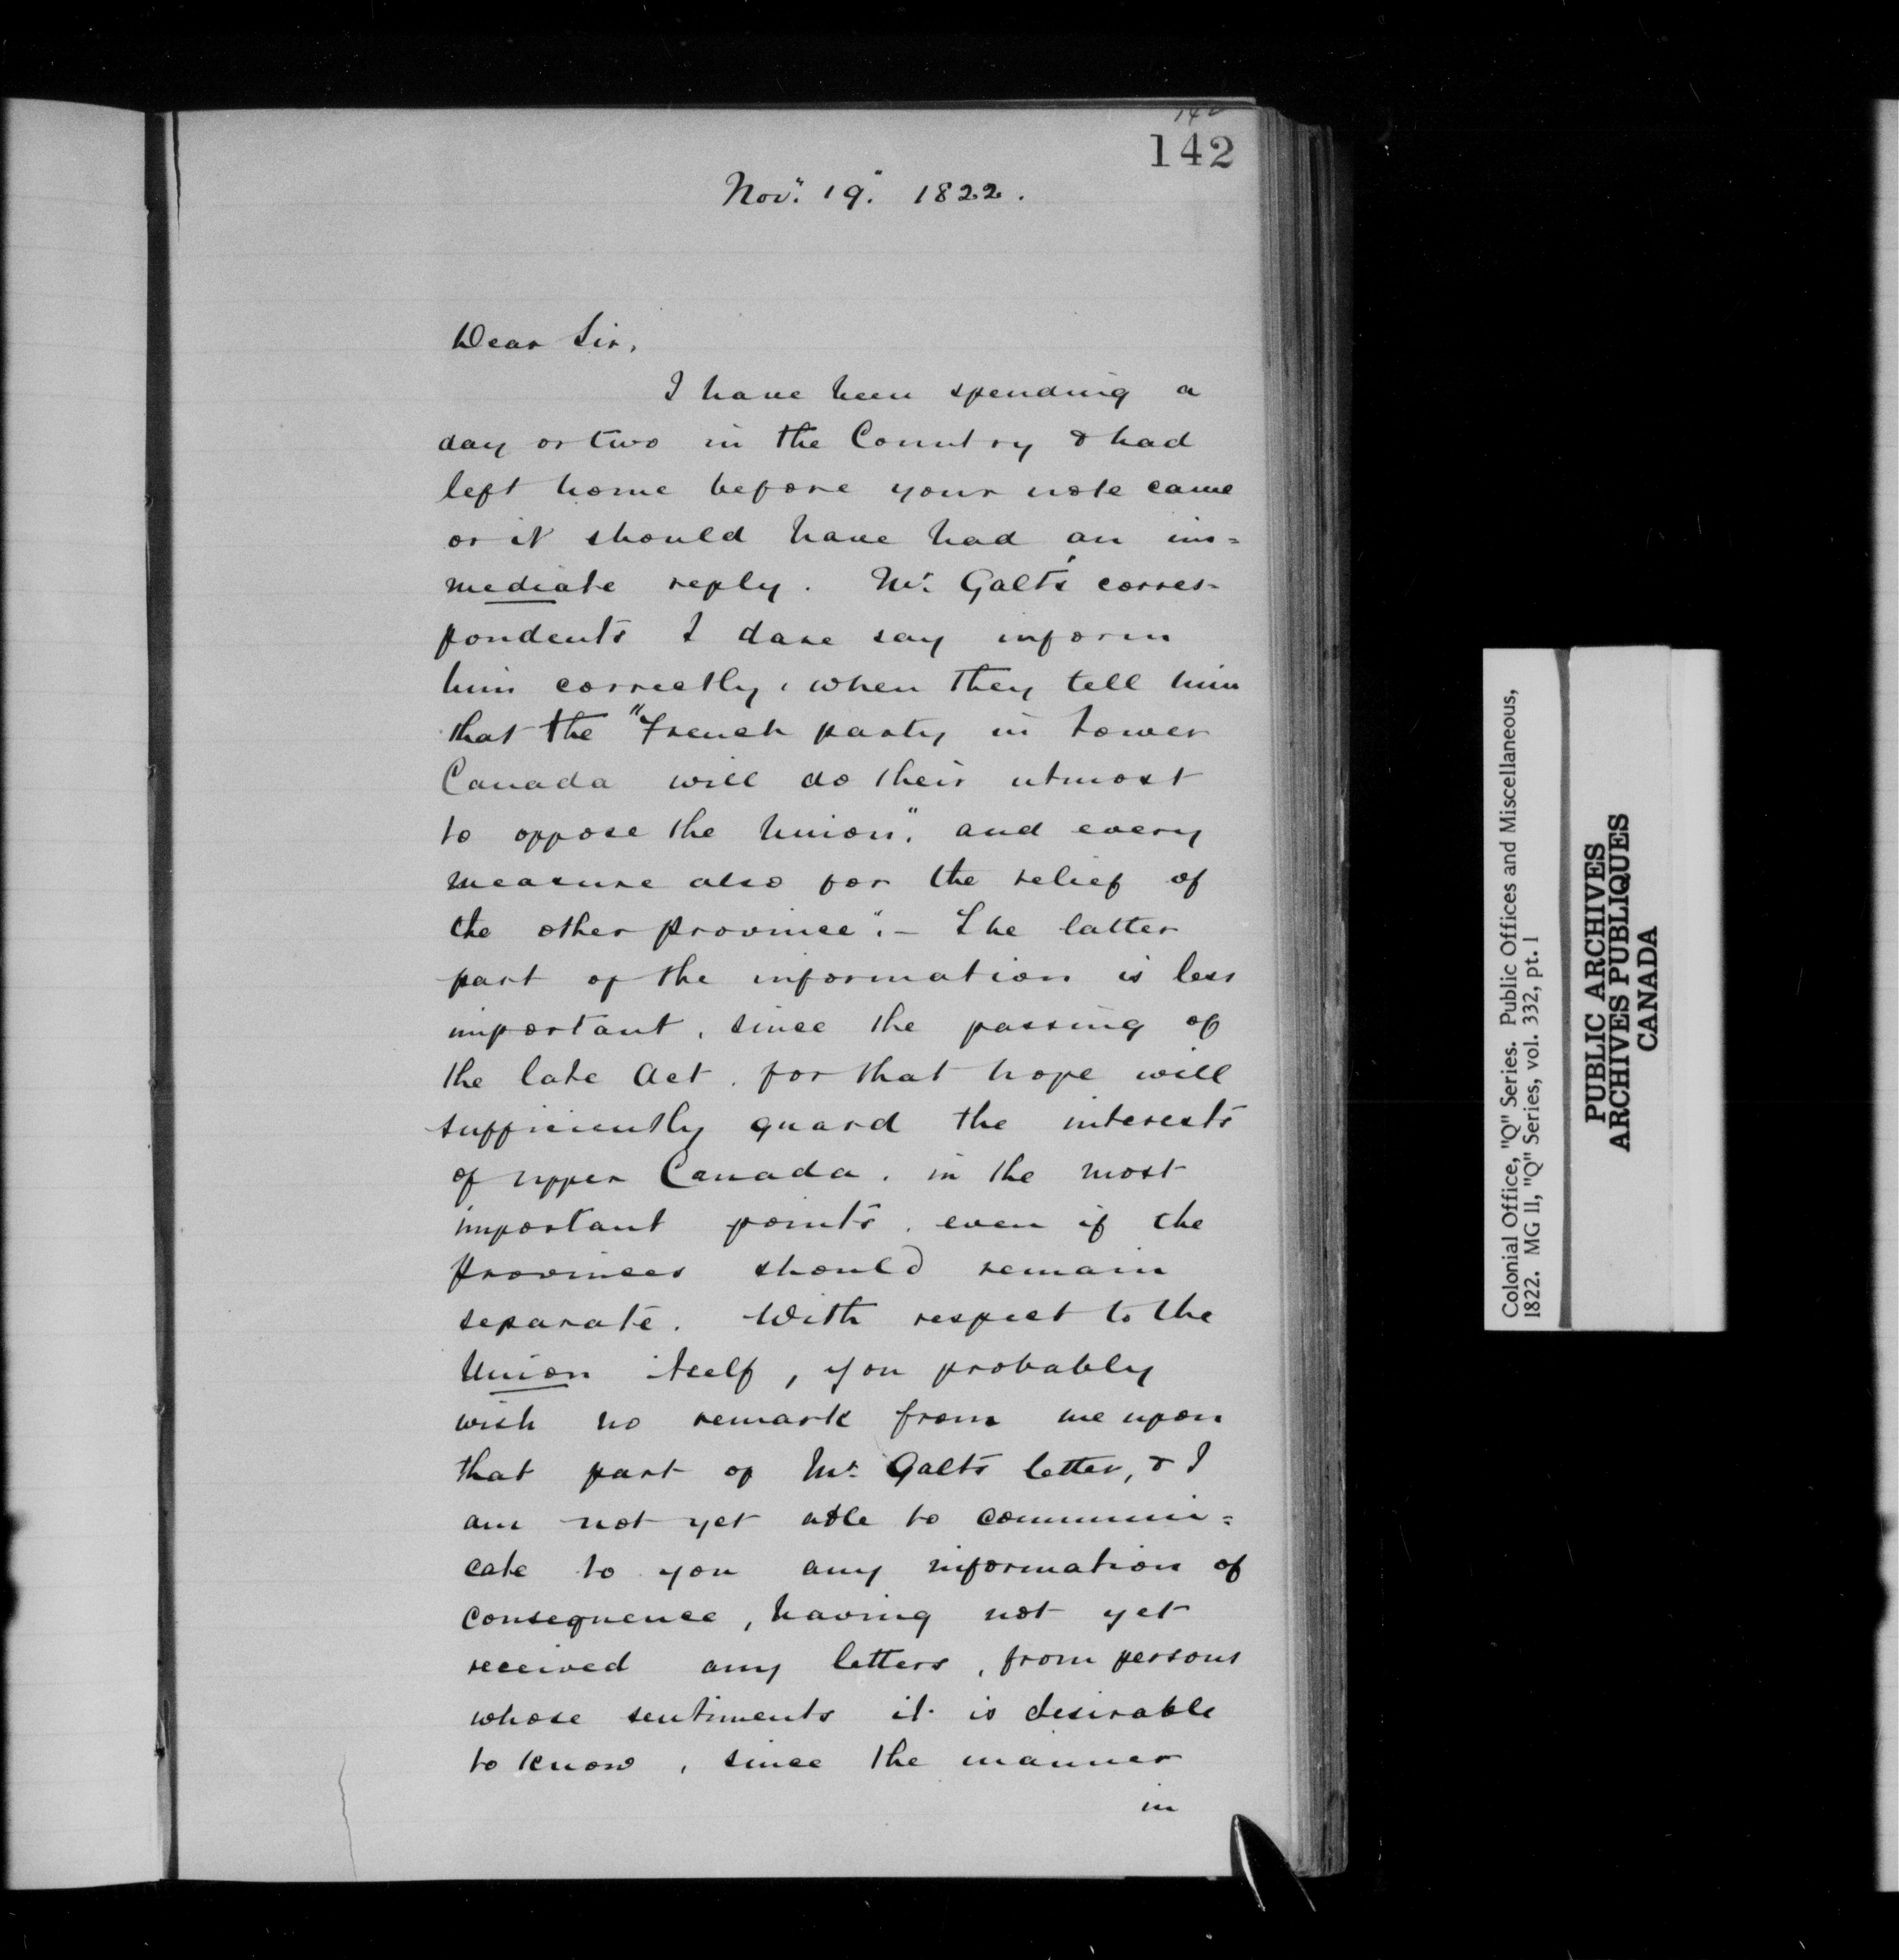 142
142
Nov". 19". 1822.
Dear Sir,
I have been spending a
day or two in the Country & had
left home before your note came
or it should have had an im=
mediate reply. Mr. Galt's corres-
pondents I dare say inform
him correctly, when they tell him
that the "French party in Lower
Canada will do their utmost
to oppose the Union", and every
measure also for the relief of
the other province". - The latter
part of the information is less
important, since the passing of
the late Act, for that hope will
sufficiently guard the interests
of upper Canada, in the most
important points, even if the
provinces should remain
separate. With respect to the
Union itself, you probably
wish no remark from me upon
that part of Mr. Galts letter, & I
am not yet able to communi=
cate to you any information of
consequence, having not yet
received any letters, from persons
whose sentiments it is desirable
to know, since the manner
in
Colonial Office, "Q" Series. Public Offices and Miscellaneous,
1822. MG 11, "Q" Series, vol. 332, pt. 1
PUBLIC ARCHIVES
ARCHIVES PUBLIQUES
CANADA